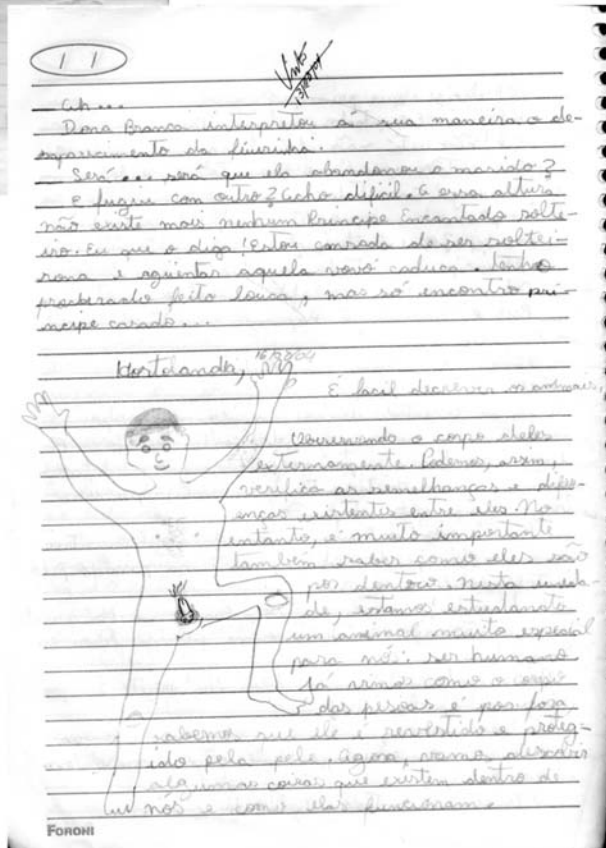 11
Visto
Ah...
Dona Branca interpretou á sua maneira o de-
saparecimento da feiurinha.
Será... será que ela abandonou o marido?
E fugiu com outro? Acho dificil. A essa altura
não existe mais nenhum Principe Encantado soltei-
iro. Eu que o diga! Estou cansada de ser soltei-
rona e agüentar aquela vovó caduca. Tenho
procurado feito louca, mas só encontro prí-
ncipe casado...
Hortolandia, 04
É facil descrever os animais,
Observando o corpo deles
externamente. Podemos, assim,
verifica as semelhanças e difer-
enças existentes entre eles. No
entanto, é muito importante
tambem saber como eles são
por dentoro. Nesta unida-
de, estamos estudando
um animal muito especial
para nó: ser humano
Já vimos como o corpo
das pesoas é por fora,
sabemos que ele é revestido e proteg-
ido pela pele. Agora, vamos descobrir
algumas coisas que existem dentro de
nós e como elas funcionam.
FORONI